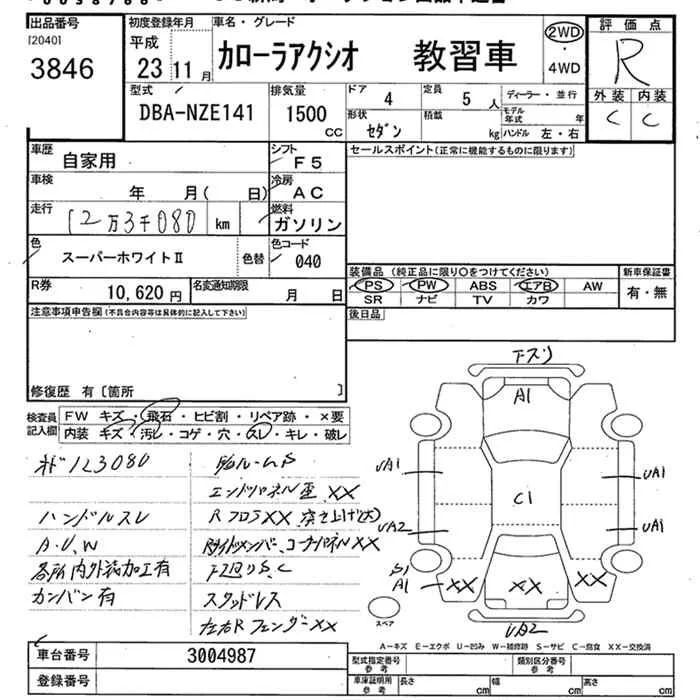 出品番号
[2040]
3846
初度登録年月
平成
23年11月
車名・グレード
カローラアクシオ 教習車
2WD
・
4WD
評価点
R
外装 内装
C C
型式
DBA-NZE141
排気量
1500
CC
ドア
4
定員
5人
ディーラー・並行
形状
セダン
積載
kg
モデル年式
年
ハンドル 左・右
車歴
自家用
シフト
F5
車検
年 月( 日)
冷房
AC
走行
12万3千080 km
燃料
ガソリン
色
スーパーホワイトⅡ
色替
色コード
040
R券
10,620円
名変通知期限
月 日
セールスポイント(正常に機能するものに限ります)
装備品 (純正品に限り○をつけてください)
PS PW ABS エアB AW
SR ナビ TV カワ
新車保証書
有・無
後日品
注意事項申告欄(不具合内容等は具体的に記入して下さい)
修復歴 有〔箇所 〕
検査員記入欄
FW キズ・飛石・ヒビ割・リペア跡・×要
内装 キズ・汚レ・コゲ・穴・スレ・キレ・破レ
123080
ハンドルスレ
A.U.W
各所内外装加工有
カンバン有
エンドパネル歪 XX
RフロアXX 突き上げ(大)
サイドメンバー、コーナーパネルXX
下回りS.C
スタッドレス
左右Rフェンダー XX
下スリ
A1
UA1
UA1
C1
UA2
UA1
S1
A1
XX
XX
XX
UA2
スペア
A－キズ E－エクボ U－凹み W－補修跡 S－サビ C－腐食 XX－交換済
車台番号
3004987
登録番号
型式指定番号
参考
類別区分番号
参考
車庫証明用
参考
長さ cm 幅 cm 高さ cm